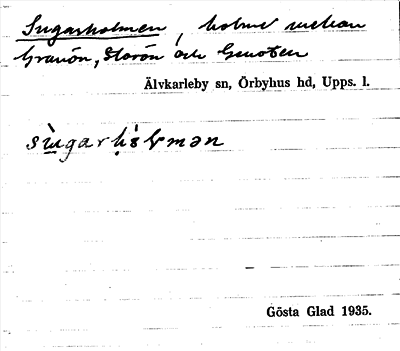 Sugarholmen, holme mellan
Granön, Storön och
Älvkarleby sn, Örbyhus hd, Upps. l.
Gösta Glad 1935.